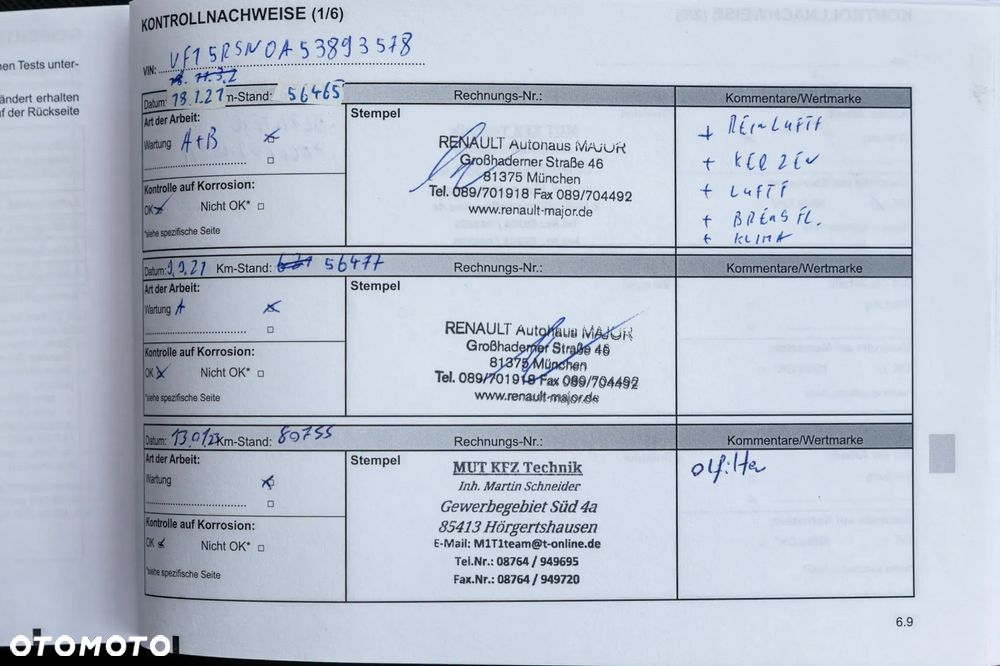 KONTROLLNACHWEISE (1/6)
en Tests unter-
ändert erhalten
f der Rückseite
VIN: VF15RSN0A53893578
Datum: 18.1.21 m-Stand: 56465 Rechnungs-Nr.: Kommentare/Wertmarke
Art der Arbeit:
Wartung A+B
Kontrolle auf Korrosion:
OK Nicht OK*
*siehe spezifische Seite
Stempel
RENAULT Autohaus MAJOR
Großhaderner Straße 46
81375 München
Tel. 089/701918 Fax 089/704492
www.renault-major.de
+ REINLUFTF
+ KERZEN
+ LUFTF
+ BREMSFL.
+ KLIMA
Datum: 9.9.21 Km-Stand: 56477 Rechnungs-Nr.: Kommentare/Wertmarke
Art der Arbeit:
Wartung A
Kontrolle auf Korrosion:
OK Nicht OK*
*siehe spezifische Seite
Stempel
RENAULT Autohaus MAJOR
Großhaderner Straße 46
81375 München
Tel. 089/701918 Fax 089/704492
www.renault-major.de
Datum: Km-Stand: 80755 Rechnungs-Nr.: Kommentare/Wertmarke
Art der Arbeit:
Wartung
Kontrolle auf Korrosion:
OK Nicht OK*
*siehe spezifische Seite
Stempel
MUT KFZ Technik
Inh. Martin Schneider
Gewerbegebiet Süd 4a
85413 Hörgertshausen
E-Mail: M1T1team@t-online.de
Tel.Nr.: 08764 / 949695
Fax.Nr.: 08764 / 949720
Ölfilter
6.9
OTOMOTO